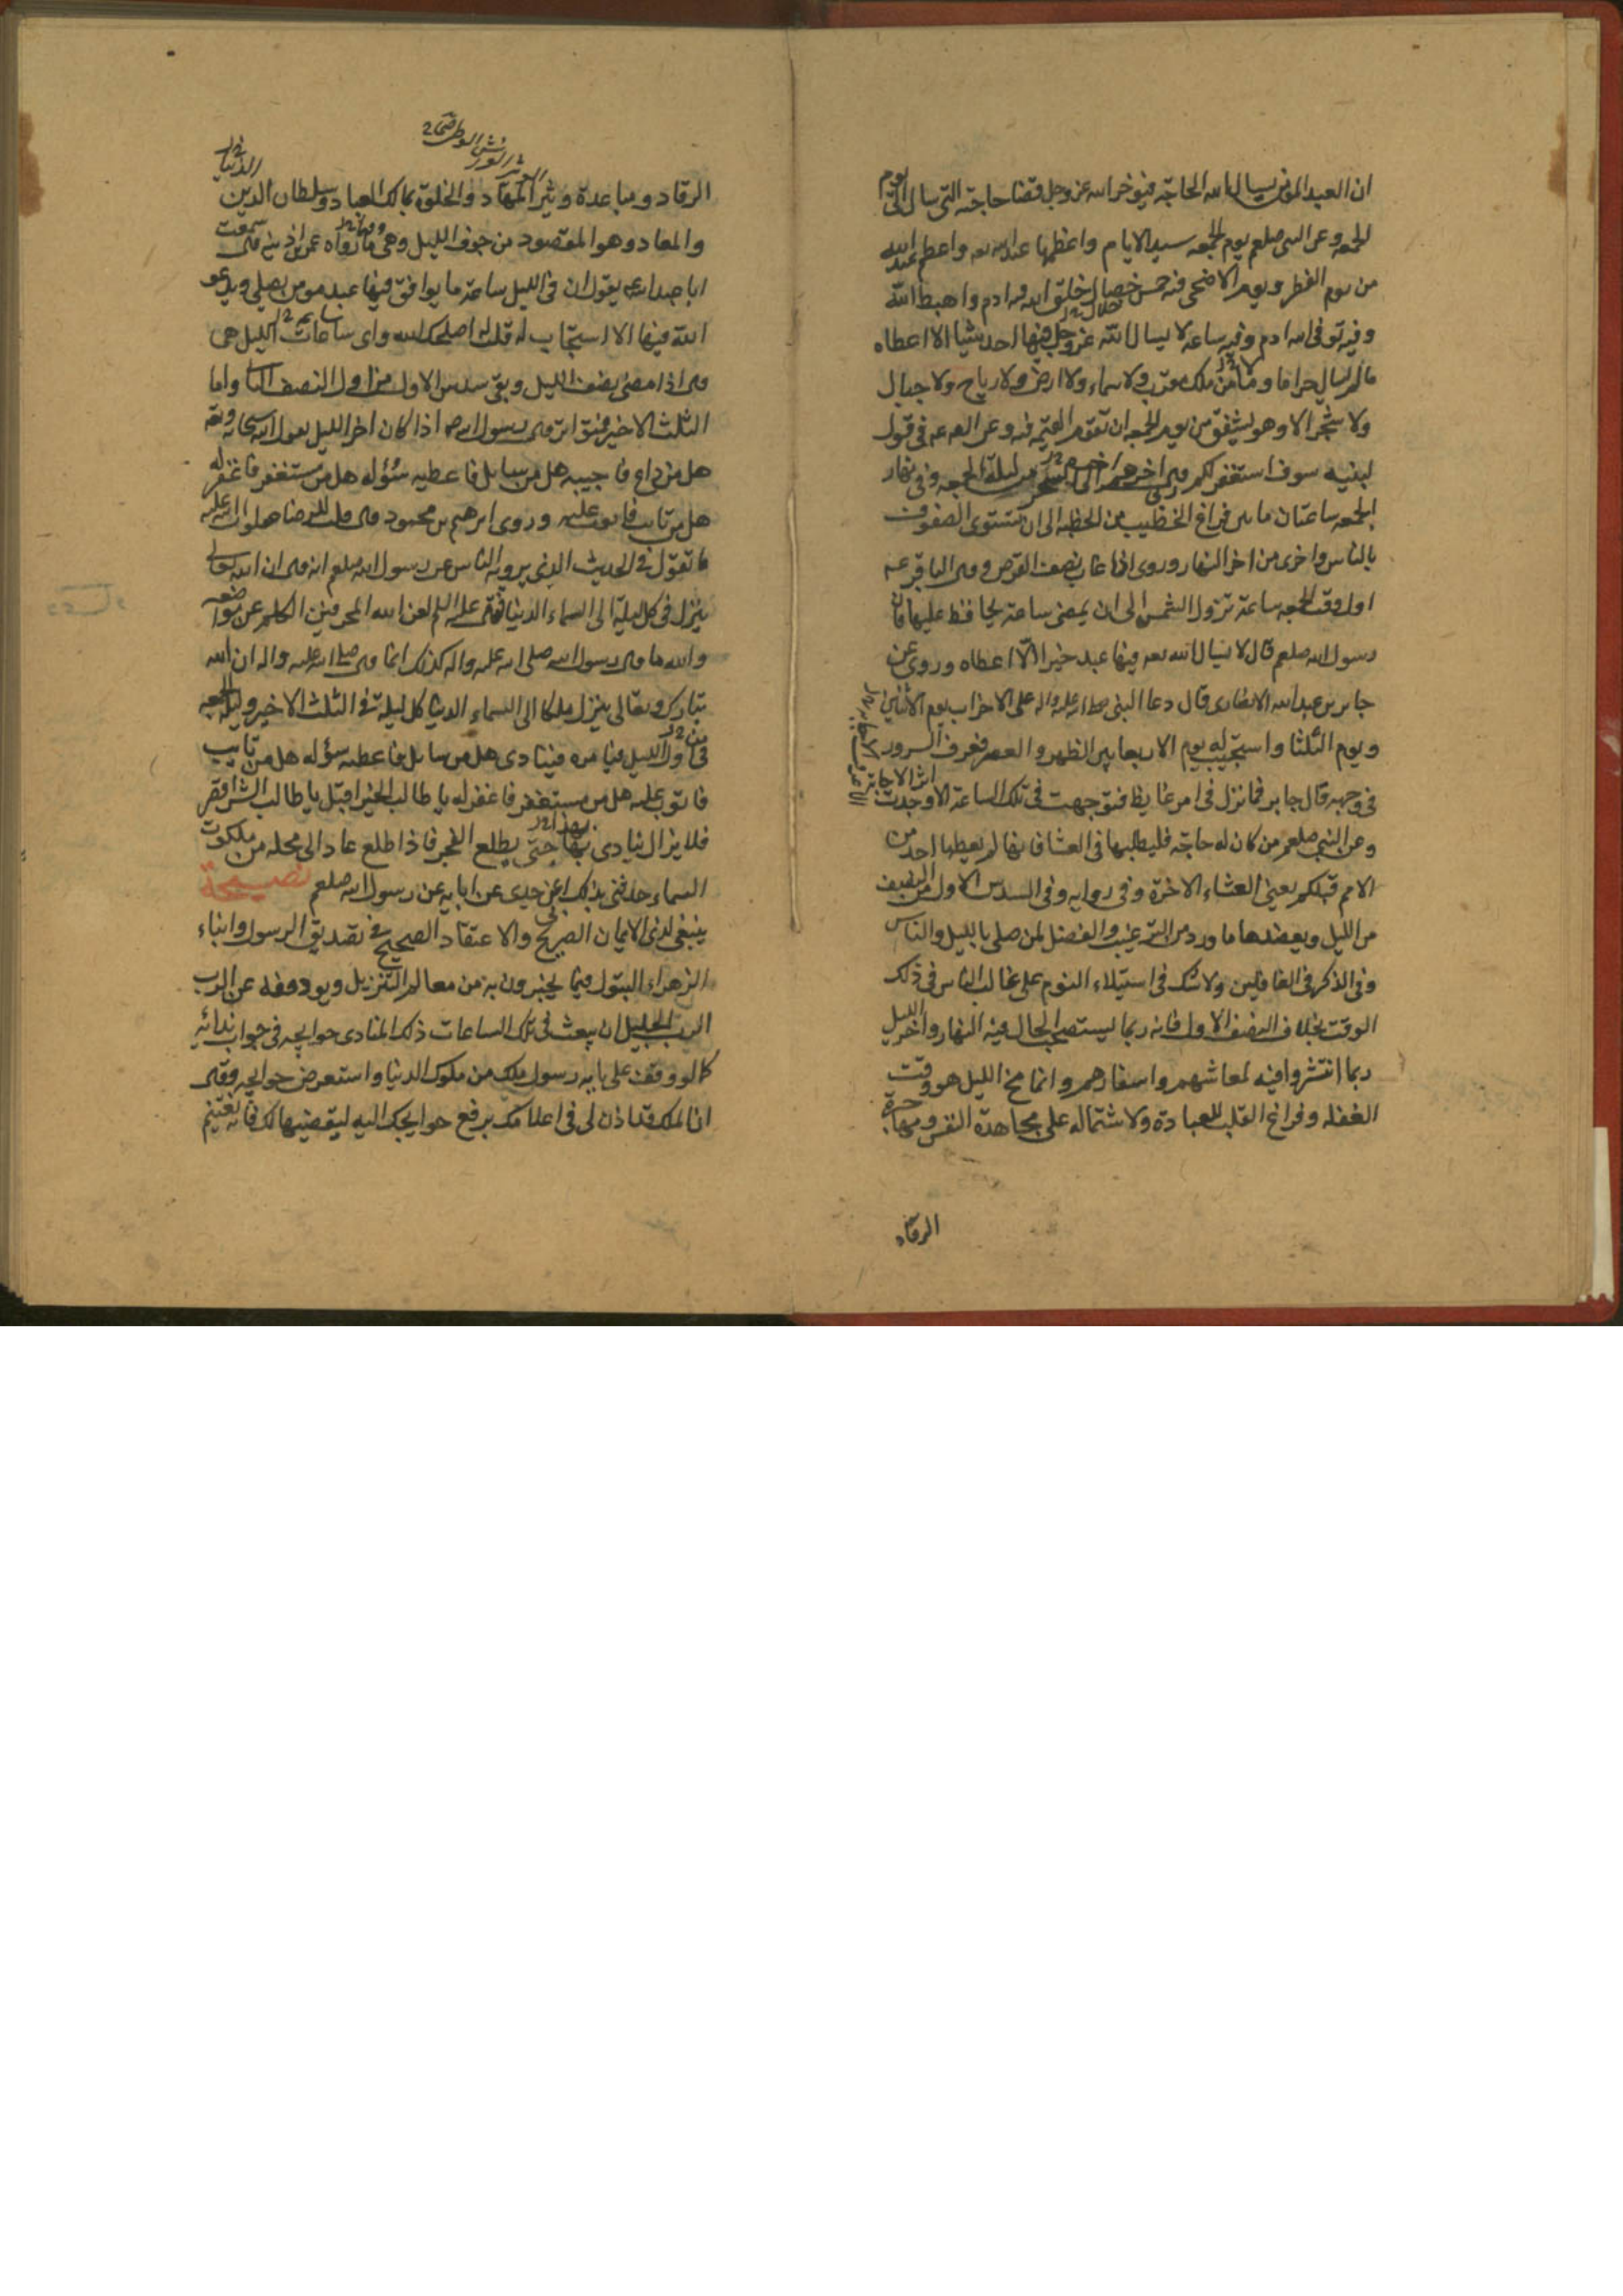 ان العبد المؤمن ليسال الله الحاجة فيؤخر الله عز وجل قضا حاجته التي سال الى يوم
الجمعه وعن النبى صلعم يوم الجمعه سيد الايام واعظمها عند الله تعه واعظم عند الله
من يوم الفطر ويوم الاضحى فيه خمس خصال خلق الله فيه ادم واهبط الله
وفيه توفى الله ادم وفيه ساعه لا يسال الله عز وجل فيها احد شيئا الا اعطاه
مالم يسال حراما وما من ملك مقرب ولا سماء ولا ارض ولا رياح ولا جبال
ولا شجر الا وهو يشفق من يوم الجمعه ان تقوم القيمه فيه وعن الصه عه فى قول
لبنيه سوف استغفر لكم قال اخرهم الى السحر من ليلة الجمعه وفى نهار
الجمعه ساعتان ما بين فراغ الخطيب من الخطبه الى ان تستوى الصفوف
بالناس واخرى من اخر النهار وروى اذا غاب نصف القرص وقال الباقر عه
اول وقت الجمعه ساعة تزول الشمس الى ان يمضى ساعة يحافظ عليها فان
رسول الله صلعم قال لا يسال الله تعه فيها عبد خيرا الا اعطاه وروى عن
جابر بن عبد الله الانصارى قال دعا النبى صلى الله عليه واله على الاحزاب يوم الاثنين
ويوم الثلثا واستجيب له يوم الاربعا بين الظهر والعصر فعرف السرور
فى وجهه قال جابر فما نزل فى امر غايظ فتوجهت فى تلك الساعة الا وجدت
اثر الاجابة
وعن النبى صلعم من كان له حاجة فليطلبها فى العشا فانها لم يعطها احد من
الامم قبلكم يعنى العشاء الاخرة وفى روايه وفى السدس الاول من النصف
من الليل ويعضدها ما ورد من الترغيب والفضل لمن صلى بالليل والناس
وفى الذكر فى الغافلين ولا شك فى استيلاء النوم على غالب الناس فى ذلك
الوقت بخلاف النصف الاول فانه ربما يستصحب الحال فيه النهار واخر الليل
ربما انتشروا فيه لمعاشهم واسفارهم وانما مخ الليل هو وقت
الغفله وفراغ القلب للعبادة ولاشتماله على مجاهدة النفس ومهاجرة
الرقاد
الرقاد ومباعدة وثير المهاد والخلوة بمالك العباد وسلطان الدين
والمعاد وهو المقصود من جوف الليل وهى ما رواه عمر بن اذينه قال سمعت
ابا عبد الله يقول ان فى الليل ساعة ما يوافق فيها عبد مومن يصلى ويدعو
الله فيها الا استجاب له قلت له اصلحك الله واى ساعات الليل هى
قال اذا مضى نصف الليل وبقى سدس الاول من اول النصف الثانى واما
الثلث الاخير فمتواتر قال رسول الله صه اذا كان اخر الليل يقول الله سبحانه وتعه
هل من داع فاجيبه هل من سايل فاعطيه سؤله هل من مستغفر فاغفر له
هل من تايب فاتوب عليه وروى ابرهيم بن محمود قال قلت للرضا صلوات الله عليه
ما تقول فى الحديث الذى يرويه الناس عن رسول الله صلعم انه قال ان الله تعالى
ينزل فى كل ليلة الى السماء الدنيا فقال عليه السلم لعن الله المحرفين الكلم عن مواضعه
والله ما قال رسول الله صلى الله عليه واله كذلك انما قال صلى الله عليه واله ان الله
تبارك وتعالى ينزل ملكا الى السماء الدنيا كل ليلة فى الثلث الاخير وليلة الجمعه
فى اول الليل فيامره فينادى هل من سايل فاعطيه سؤله هل من تايب
فاتوب عليه هل من مستغفر فاغفر له يا طالب الخير اقبل يا طالب الشر اقصر
فلا يزال ينادى بها حتى يطلع الفجر فاذا طلع عاد الى محله من ملكوت
السماء حدثنى بذلك ابى عن جدى عن ابايه عن رسول الله صلعم نصيحة
ينبغى لذى الايمان الصريح والاعتقاد الصحيح فى تصديق الرسول وابناء
الزهراء البتول فيما يخبرون به من معالم التنزيل ويودونه عن الرب
الرب الجليل ان يبعث فى تلك الساعات ذلك المنادى حوايجه فى جواب ندائه
كما لو وقف على بابه رسول ملك من ملوك الدنيا واستعرض حوايجه وقال
ان الملك قد اذن لى فى اعلامك برفع حوايجك اليه ليقضيها لك فانه يغتنم